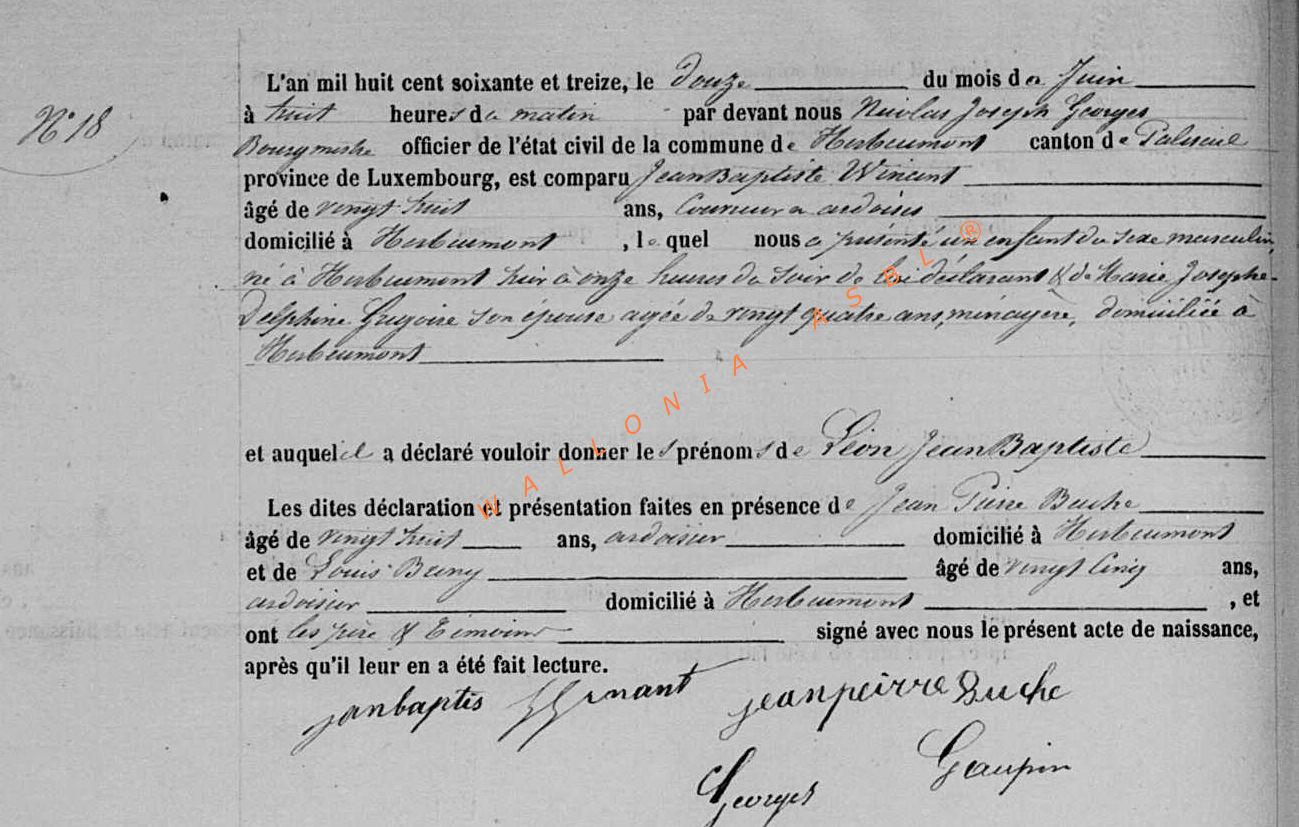 N° 18
L'an mil huit cent soixante et treize, le Douze du mois de Juin
à huit heures du matin par devant nous Nicolas Joseph Georges
Bourgmestre officier de l'état civil de la commune de Herbeumont canton de Paliseul
province de Luxembourg, est comparu Jean Baptiste Wincent
âgé de vingt huit ans, Couvreur en ardoises
domicilié à Herbeumont , le quel nous a présenté un enfant du sexe masculin,
né à Herbeumont hier à onze heures du soir de lui déclarant & de Marie Josephe
Delphine Grégoire son épouse agée de vingt quatre ans, ménagère, domiciliée à
Herbeumont
et auquel il a déclaré vouloir donner les prénoms de Léon Jean Baptiste
Les dites déclaration et présentation faites en présence de Jean Pierre Buche
âgé de vingt huit ans, ardoisier domicilié à Herbeumont
et de Louis âgé de vingt cinq ans,
ardoisier domicilié à Herbeumont , et
ont les père & témoins signé avec nous le présent acte de naissance,
après qu'il leur en a été fait lecture.
janbaptis jeanpeirre Buche
Georges
WALLONIA ASBL ®